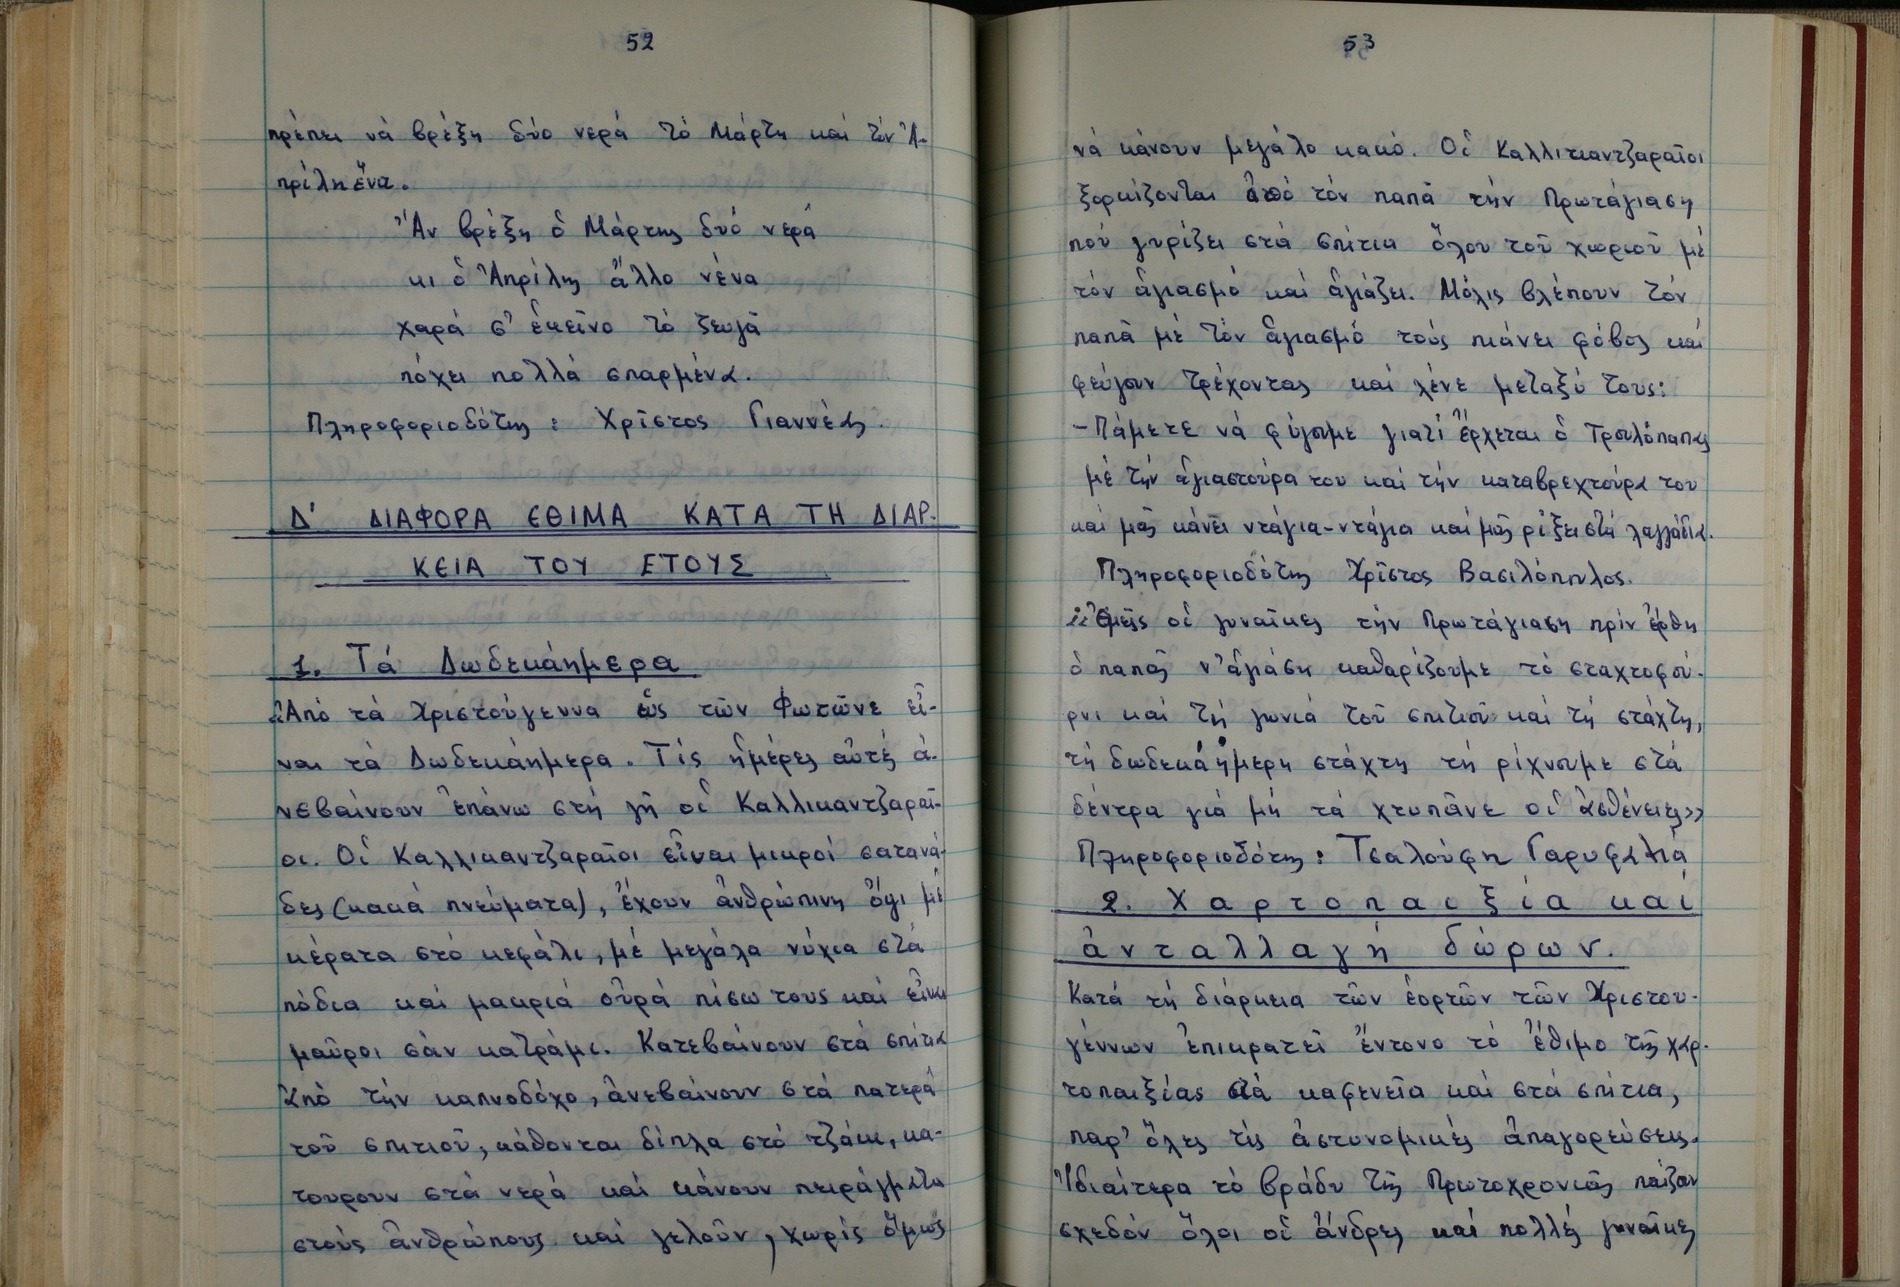 52
πρέπει νά βρέξη δύο νερά τό Μάρτη καί τόν Ἀ-
πρίλη ἕνα.
Ἄν βρέξη ὁ Μάρτης δυό νερά
κι ὁ Ἀπρίλης ἄλλο νένα
χαρά σ' ἐκεῖνο τό ζευγᾶ
πόχει πολλά σπαρμένα.
Πληροφοριοδότης : Χρῖστος Γιαννέας.
Δ' ΔΙΑΦΟΡΑ ΕΘΙΜΑ ΚΑΤΑ ΤΗ ΔΙΑΡ-
ΚΕΙΑ ΤΟΥ ΕΤΟΥΣ
1. Τά Δωδεκάημερα
«Ἀπό τά Χριστούγεννα ὥς τῶν Φωτῶνε εἶ-
ναι τά Δωδεκάημερα. Τίς ἡμέρες αὐτές ἀ-
νεβαίνουν ἐπάνω στή γῆ οἱ Καλλικαντζαραῖ-
οι. Οἱ Καλλικαντζαραῖοι εἶναι μικροί σατανά-
δες (κακά πνεύματα), ἔχουν ἀνθρώπινη ὄψι μέ
κέρατα στό κεφάλι, μέ μεγάλα νύχια στά
πόδια καί μακριά οὐρά πίσω τους καί εἶναι
μαῦροι σάν κατράμι. Κατεβαίνουν στά σπίτια
ἀπό τήν καπνοδόχο, ἀνεβαίνουν στά πατερά
τοῦ σπιτιοῦ, κάθονται δίπλα στό τζάκι, κα-
τουρουν στά νερά καί κάνουν πειράγματα
στούς ἀνθρώπους καί γελοῦν, χωρίς ὅμως
53
νά κάνουν μεγάλο κακό. Οἱ Καλλικαντζαραῖοι
ξορκίζονται ἀπό τόν παπᾶ τήν Πρωτάγιαση
πού γυρίζει στά σπίτια ὅλου τοῦ χωριοῦ μέ
τόν ἁγιασμό καί ἁγιάζει. Μόλις βλέπουν τόν
παπᾶ μέ τόν ἁγιασμό τούς πιάνει φόβος καί
φεύγουν τρέχοντας καί λένε μεταξύ τους:
-Πάμετε νά φύγουμε γιατί ἔρχεται ὁ Τρουλόπαπας
μέ τήν ἁγιαστούρα του καί τήν καταβρεχτούρα του
καί μᾶς κάνει ντάγια-ντάγια καί μᾶς ρίξει στά λαγγάδια.
Πληροφοριοδότης Χρῖστος Βασιλόπουλος.
«Ἐμεῖς οἱ γυναῖκες τήν Πρωτάγιαση πρίν ἔρθη
ὁ παπᾶς ν' ἁγιάση καθαρίζουμε τό σταχτοφού-
ρνι καί τή γωνιά τοῦ σπιτιοῦ καί τή στάχτη,
τή δωδεκάημερη στάχτη τή ρίχνουμε στά
δέντρα γιά μή τά χτυπᾶνε οἱ ἀσθένειες»
Πληροφοριοδότης: Τσαλούφη Γαρυφαλιά
2. Χαρτοπαιξία καί
ἀνταλλαγή δώρων.
Κατά τή διάρκεια τῶν ἑορτῶν τῶν Χριστου-
γέννων ἐπικρατεῖ ἔντονο τό ἔθιμο τῆς χαρ-
τοπαιξίας στά καφενεῖα καί στά σπίτια,
παρ' ὅλες τίς ἀστυνομικές ἀπαγορεύσεις.
Ἰδιαίτερα τό βράδυ τῆς Πρωτοχρονιᾶς παίζουν
σχεδόν ὅλοι οἱ ἄνδρες καί πολλές γυναῖκες